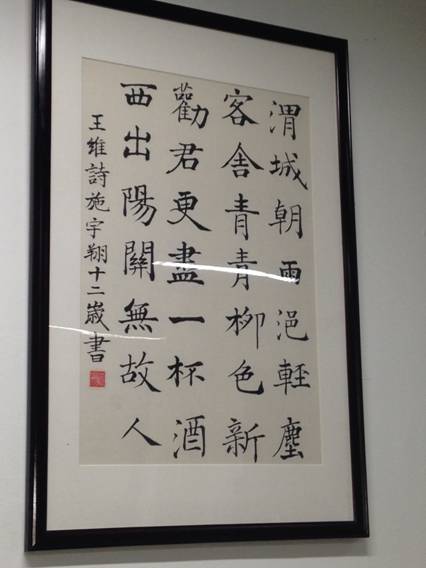 渭城朝雨浥輕塵
客舍青青柳色新
勸君更盡一杯酒
西出陽關無故人
王維詩施宇翔十二歲書